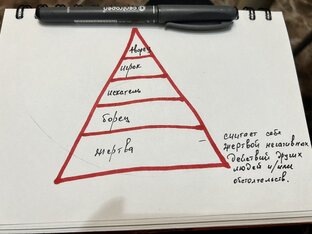 centropen
творец
игрок
искатель
борец
жертва
считает себя
жертвой негативных
действий других
людей и/или
обстоятельств.